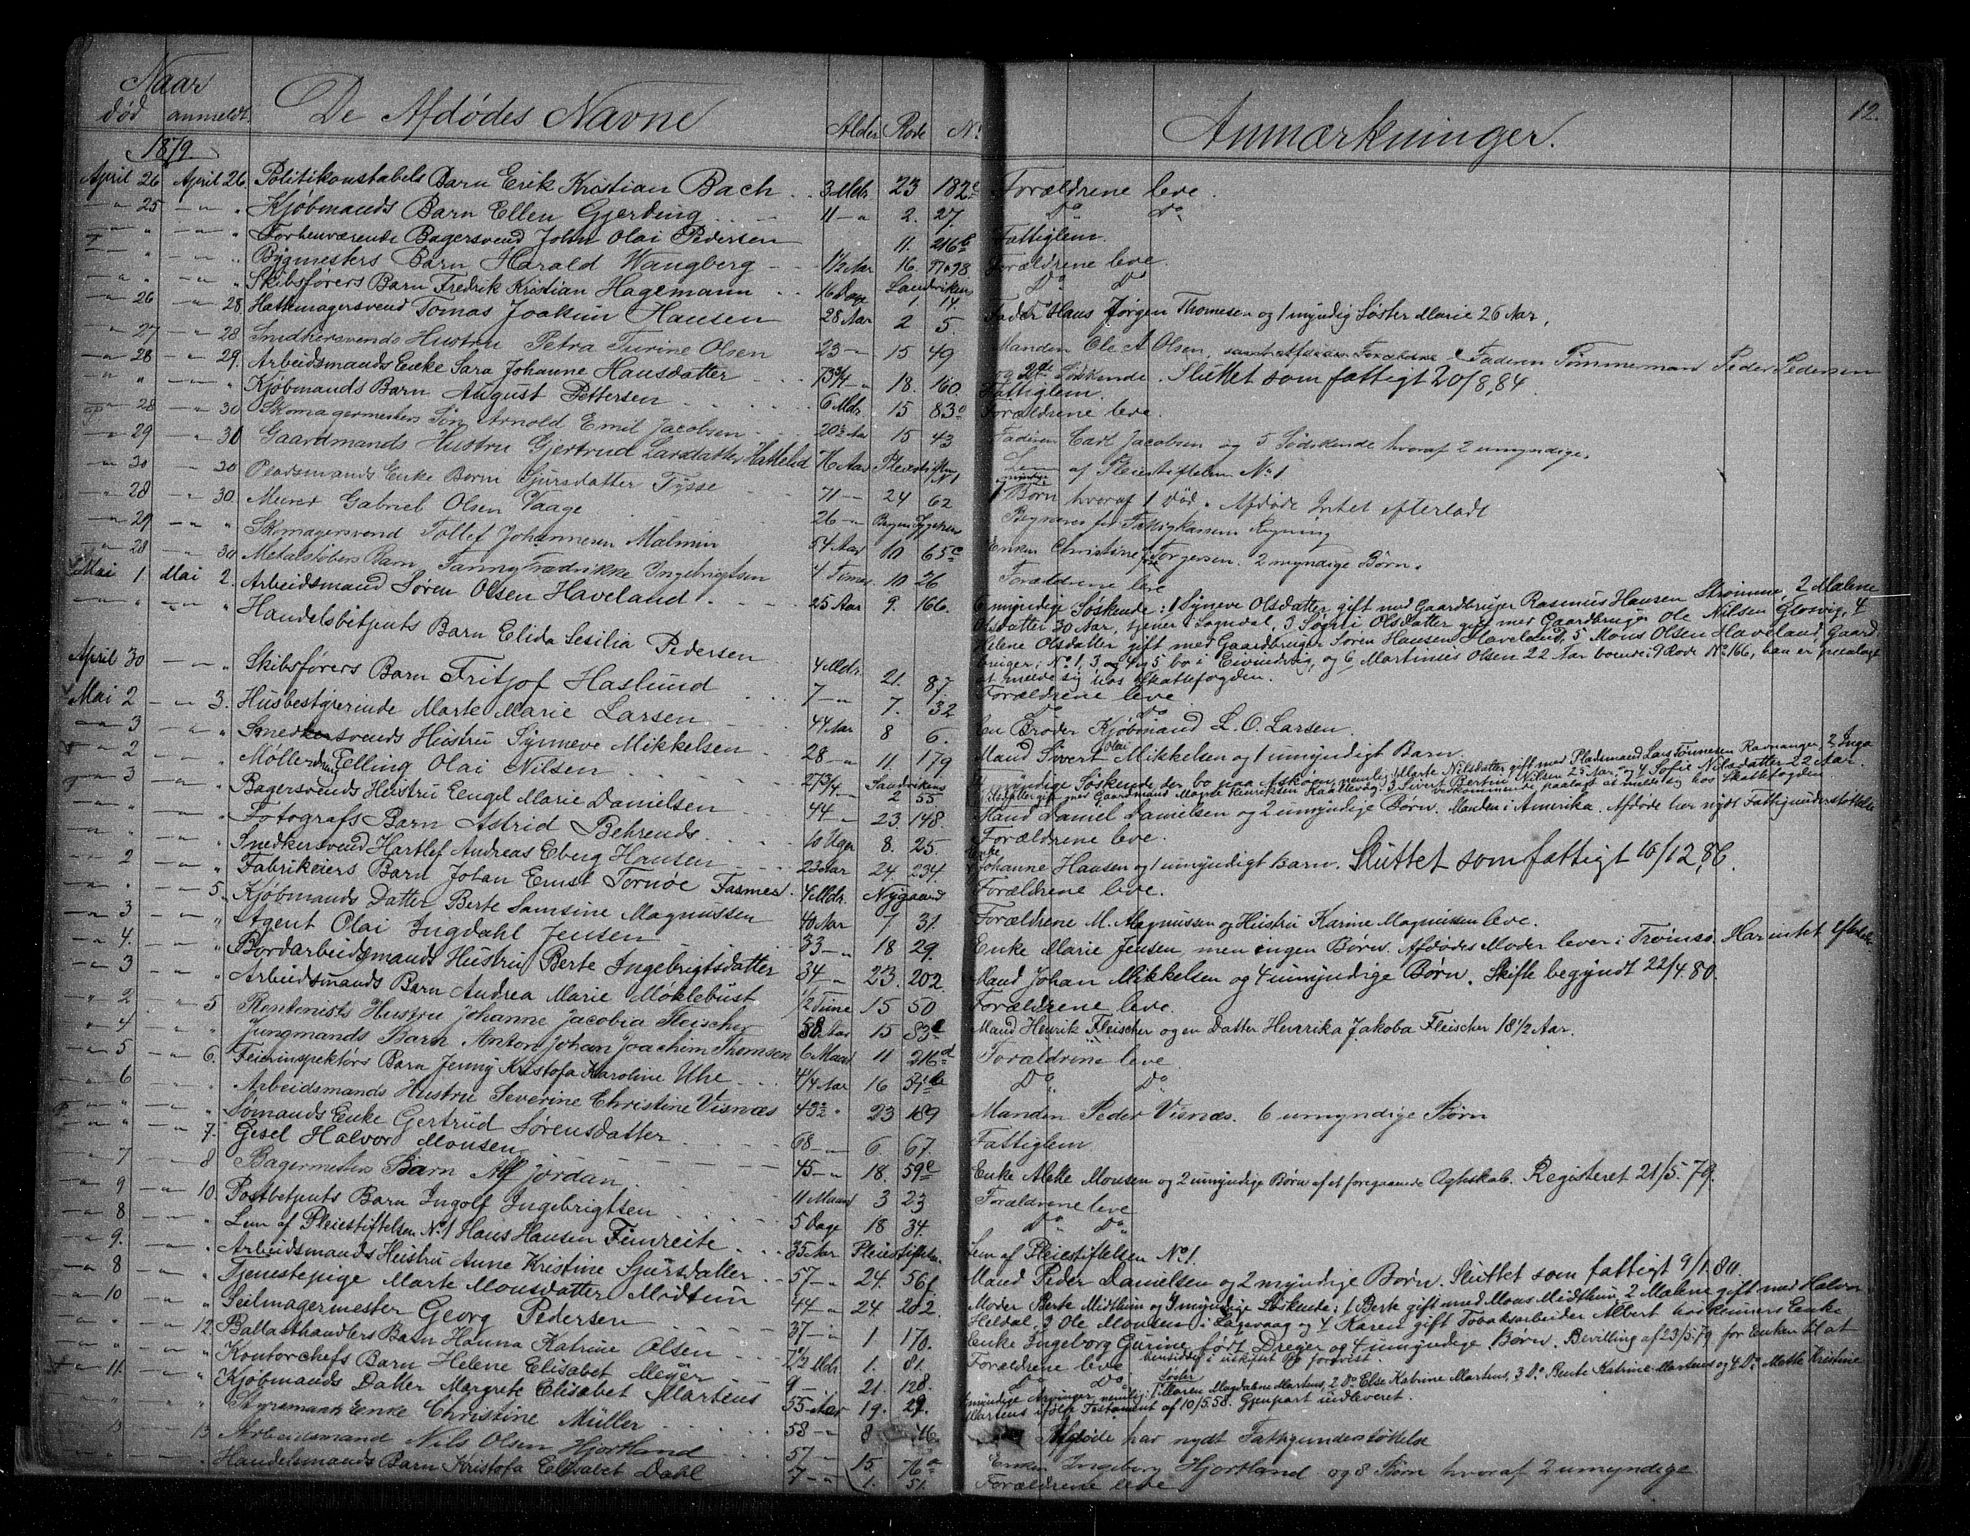 12.
Naar
død anmeldt. De Afdødes Navne Alder Rode No Anmærkninger.
1879.
April 26 April 26 Politikonstabels Barn Erik Kristian Bach 3 Mdr. 23 182c Forældrene leve.
" 25 " " Kjøbmands Barn Ellen Gjerding 11 " 2. 27. Do Do
" " " " Forhenværende Bagersvend John Olai Pedersen 11. 216b Fattiglem.
" " " " Bygmesters Barn Harald Wangberg 1½ Aar 16. 97a98 Forældrene leve.
" " " " Skibsførers Barn Fredrik Kristian Hagemann 16 Dage Sandviken 1 14 Do Do
" 26 " 28. Hattemagersvend Tomas Joakim Hansen 28 Aar 2 5. Fader Hans Jørgen Thomesen og 1 myndig Søster Marie 26 Aar.
" 27 " 28. Snedkersvends Hustru Petra Turine Olsen 23 " 15 49 Manden Ole A. Olsen, Faderen Tømmermand Peder Pedersen
og Søskende. Sluttet som fattigt 20/8,84.
" 28 " 29. Arbeidsmands Enke Sara Johanne Hansdatter 73¾ " 18. 160. Fattiglem.
" " " " Kjøbmands Barn August Pettersen 6 Mdr. 15 83a Forældrene leve.
" 28 " 30 Skomagermesters Søn Arnold Emil Jacobsen 20½ Aar 15 43 Faderen Carl Jacobsen og 5 Sødskende hvoraf 2 umyndige.
" 29 " 30 Gaardmands Hustru Gjertrud Larsdatter Hattelid 76 Aar Pleiestiftelsen No 1 Lem af Pleiestiftelsen No 1
" 30 " 30 Pladsmands Enke Børn Sjursdatter Tysse 71 " 24 62 Børn hvoraf 1 død. Afdøde Intet efterladt
" 28 " 30. Murer Gabriel Olsen Vaage 26 " Bergens Sygehus Begraves for Fattigkassens Regning
" 29 " " Skomagersvend Tollef Johannesen Malmin 54 Aar 10 65c Enken Christine Torgersen. 2 myndige Børn.
" 28 " 30 Metalstøbers Barn Fanny Fredrikke Ingebrigtsen 4 Timer 10 26 Forældrene leve
Mai 1 Mai 2. Arbeidsmand Søren Olsen Haveland. 25 Aar 9. 166. 6 myndige Søskende: 1 Syneve Olsdatter gift med Gaardbruger Rasmus Hansen Strømme, 2 Malene
Olsdatter 30 Aar, tjener i Sogndal, 3 Sogni Olsdatter gift med Gaardbruger Ole Nilsen Glosvig, 4
Helene Olsdatter gift med Gaardbruger Søren Hansen Haveland, 5 Mons Olsen Haveland, Gaard-
bruger; No 1, 3 og 4 og 5 bo i Eivindvig, og 6 Martinius Olsen 22 Aar boende i 9 Rode No 166, han er paalagt
at melde sig hos Skattefogden.
" " " " Handelsbetjents Barn Elida Sesilia Pedersen 4 Mdr. 21. 87. Forældrene leve.
April 30 " " Skibsførers Barn Fritjof Haslund 7 " 7. 32 Do Do
Mai 2 " 3. Husbestyrerinde Marte Marie Larsen 44 Aar 8 6. En Broder Kjøbmand L. O. Larsen.
" 3 " " Snedkersvends Hustru Synneve Mikkelsen 28 " 11 179. Mand Sivert Olai Mikkelsen og 1 umyndigt Barn.
" 2 " " Møllerdreng Elling Olai Nilsen 27¾ " Sandvikens 2 55 myndige Søskende der bo paa Askøen, nemlig Marte Nilsdatter gift med Pladsmand Lars Tønnesen Ravnanger, 2 Inga
Nilsdatter gift med Gaardmand Mogte Henriksen Kaatlevig, 3 Sivert Bertin Nilsen 25 Aar, og 4 Sofie Nilsdatter 22 Aar. paalagt at melde sig hos Skattefogden
" 3 " " Bagersvends Hustru Engel Marie Danielsen 44 " 23. 148. Mand Daniel Danielsen og 2 umyndige Børn. Manden i Amerika. Afdøde har nydt Fattigunderstøttelse
" " " " Fotografs Barn Astrid Behrends. 10 Uger 8. 25. Forældrene leve.
" " " " Snedkersvend Hartlef Andreas Eberg Hansen 23 Aar 24. 234. Enke Johanne Hansen og 1 umyndigt Barn. Sluttet som fattigt 16/12,86.
" 2 " " Fabrikeiers Barn Johan Ernst Tornøe Fasmer. 4 Mdr. Nygaard Forældrene leve.
" " " 5. Kjøbmands Datter Berte Samsine Magnussen 40 Aar 7 31. Forældrene M. Magnussen og Hustru Karine Magnussen leve.
" 3 " " Agent Olai Ingdahl Jensen 33 " 18 29. Enke Marie Jensen men ingen Børn. Afdødes Moder lever i Tromsø. Har intet efterladt
" 4. " " Bordarbeidsmands Hustru Berte Ingebrigtsdatter 34 " 23. 202. Mand Johan Mikkelsen og 4 umyndige Børn. Skifte begyndt 22/4 80.
" 3 " " Arbeidsmands Barn Andrea Marie Møklebust ½ Time 15 50 Forældrene leve.
" 2 " 5. Rentenists Hustru Johanne Jacobia Fleischer 58 Aar 15 83c Mand Henrik Fleischer og en Datter Henrika Jakoba Fleischer 18½ Aar.
" 4 " " Jungmands Barn Anton Johan Joachim Thomsen 6 Maand 11 216d Forældrene leve
" 5 " 6. Feierinspektørs Barn Jenny Kristofa Karoline Uhe 4¼ Aar 16 Do Do
" 6 " " Arbeidsmands Hustru Severine Christine Visnæs 23 189 Manden Peder Visnæs. 6 umyndige Børn
" " " " Sømands Enke Gertrud Sørensdatter 68 " 6 67. Fattiglem
" " " 7. Gesel Halvor Monsen 45 " 18. 59c Enke Aleke Monsen og 2 umyndige Børn af et foregaaende Ægteskab. Registeret 21/5.79.
" 7 " 8 Bagermesters Barn Alf Jordan 11 Maand 3 23 Forældrene leve
" 9 " 10. Postbetjents Barn Ingolf Ingebrigtsen 5 Dage 18 34. Do Do
" 8 " " Lem af Pleiestiftelsen No 1 Hans Hansen Fimreite 35 Aar Pleiestiftelsen Lem af Pleiestiftelsen No 1.
" 9. " " Arbeidsmands Hustru Anne Kristine Sjursdatter 57 " 24. 56f. Mand Peder Danielsen og 2 myndige Børn. Sluttet som fattigt 9/1.80.
" 8 " " Tjenestepige Marte Monsdatter Midtun 44 " 24 202 Moder Berte Midthun og myndige Søskende: 1 Berte gift med Mons Midthun, 2 Malene gift med Halvor
Heldal, 3 Ole Monsen i Laxevaag og 4 Karen gift Tobaksarbeider Albert
" 10 " " Seilmagermester Georg Pedersen 37 " 1 170. Enke Ingeborg Gurine født Dreyer og 4 umyndige Børn. Bevilling af 23/5.79 for Enken til at
hensidde i uskiftet Bo
" " " 12. Ballasthandlers Barn Hanna Katrine Olsen Mdr. 1. 81. Forældrene leve
" 11. " " Kontorchefs Barn Helene Elisabet Meyer 9 " 21. 128. Do Do
" " " " Kjøbmands Datter Margrete Elisabet Martens 55 Aar 19. 29. myndige Arvinger nemlig: 1 Søster Maren Magdalene Martens, 2 Do Else Katrine Martens, 3 Do Bente Katrine Martens og 4 Do Mette Kristine
Martens ifølge Testament af 10/5.58. Gjenpart udleveret.
" " " " Styrsmands Enke Christine Müller 58 " 8 46. Afdøde har nydt Fattigunderstøttelse
" 13 " 13. Arbeidsmand Nils Olsen Hjortland 57 " 15 76a Enken Ingeborg Hjortland og 8 Børn hvoraf 2 umyndige
" " " " Handelsmands Barn Kristofa Elisabet Dahl 7 " 1. 51. Forældrene leve